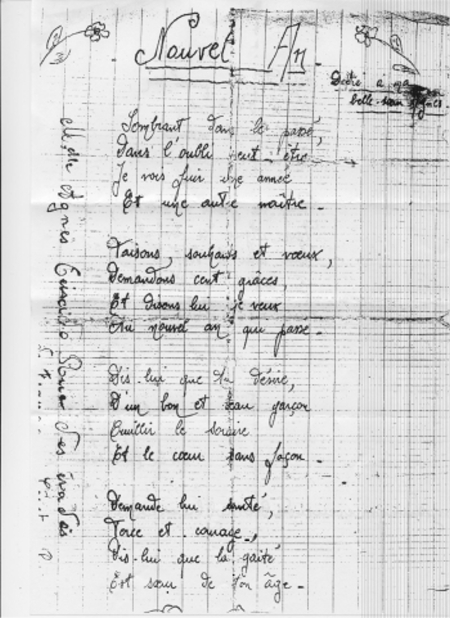 Nouvel An.
Dédié à ma
belle-sœur Agnès.
Sombrant dans le passé,
Dans l'oubli peut-être
Je vois fuir une année
Et une autre naître.
Faisons, souhaits et vœux,
Demandons cent grâces,
Et disons lui je veux
Au nouvel an qui passe.
Dis-lui que tu désire,
D'un bon et beau garçon
Cueillir le sourire
Et le cœur sans façon.
Demande lui santé,
Force et courage,
Dis-lui que la gaité
Est sœur de ton âge.
Agnès